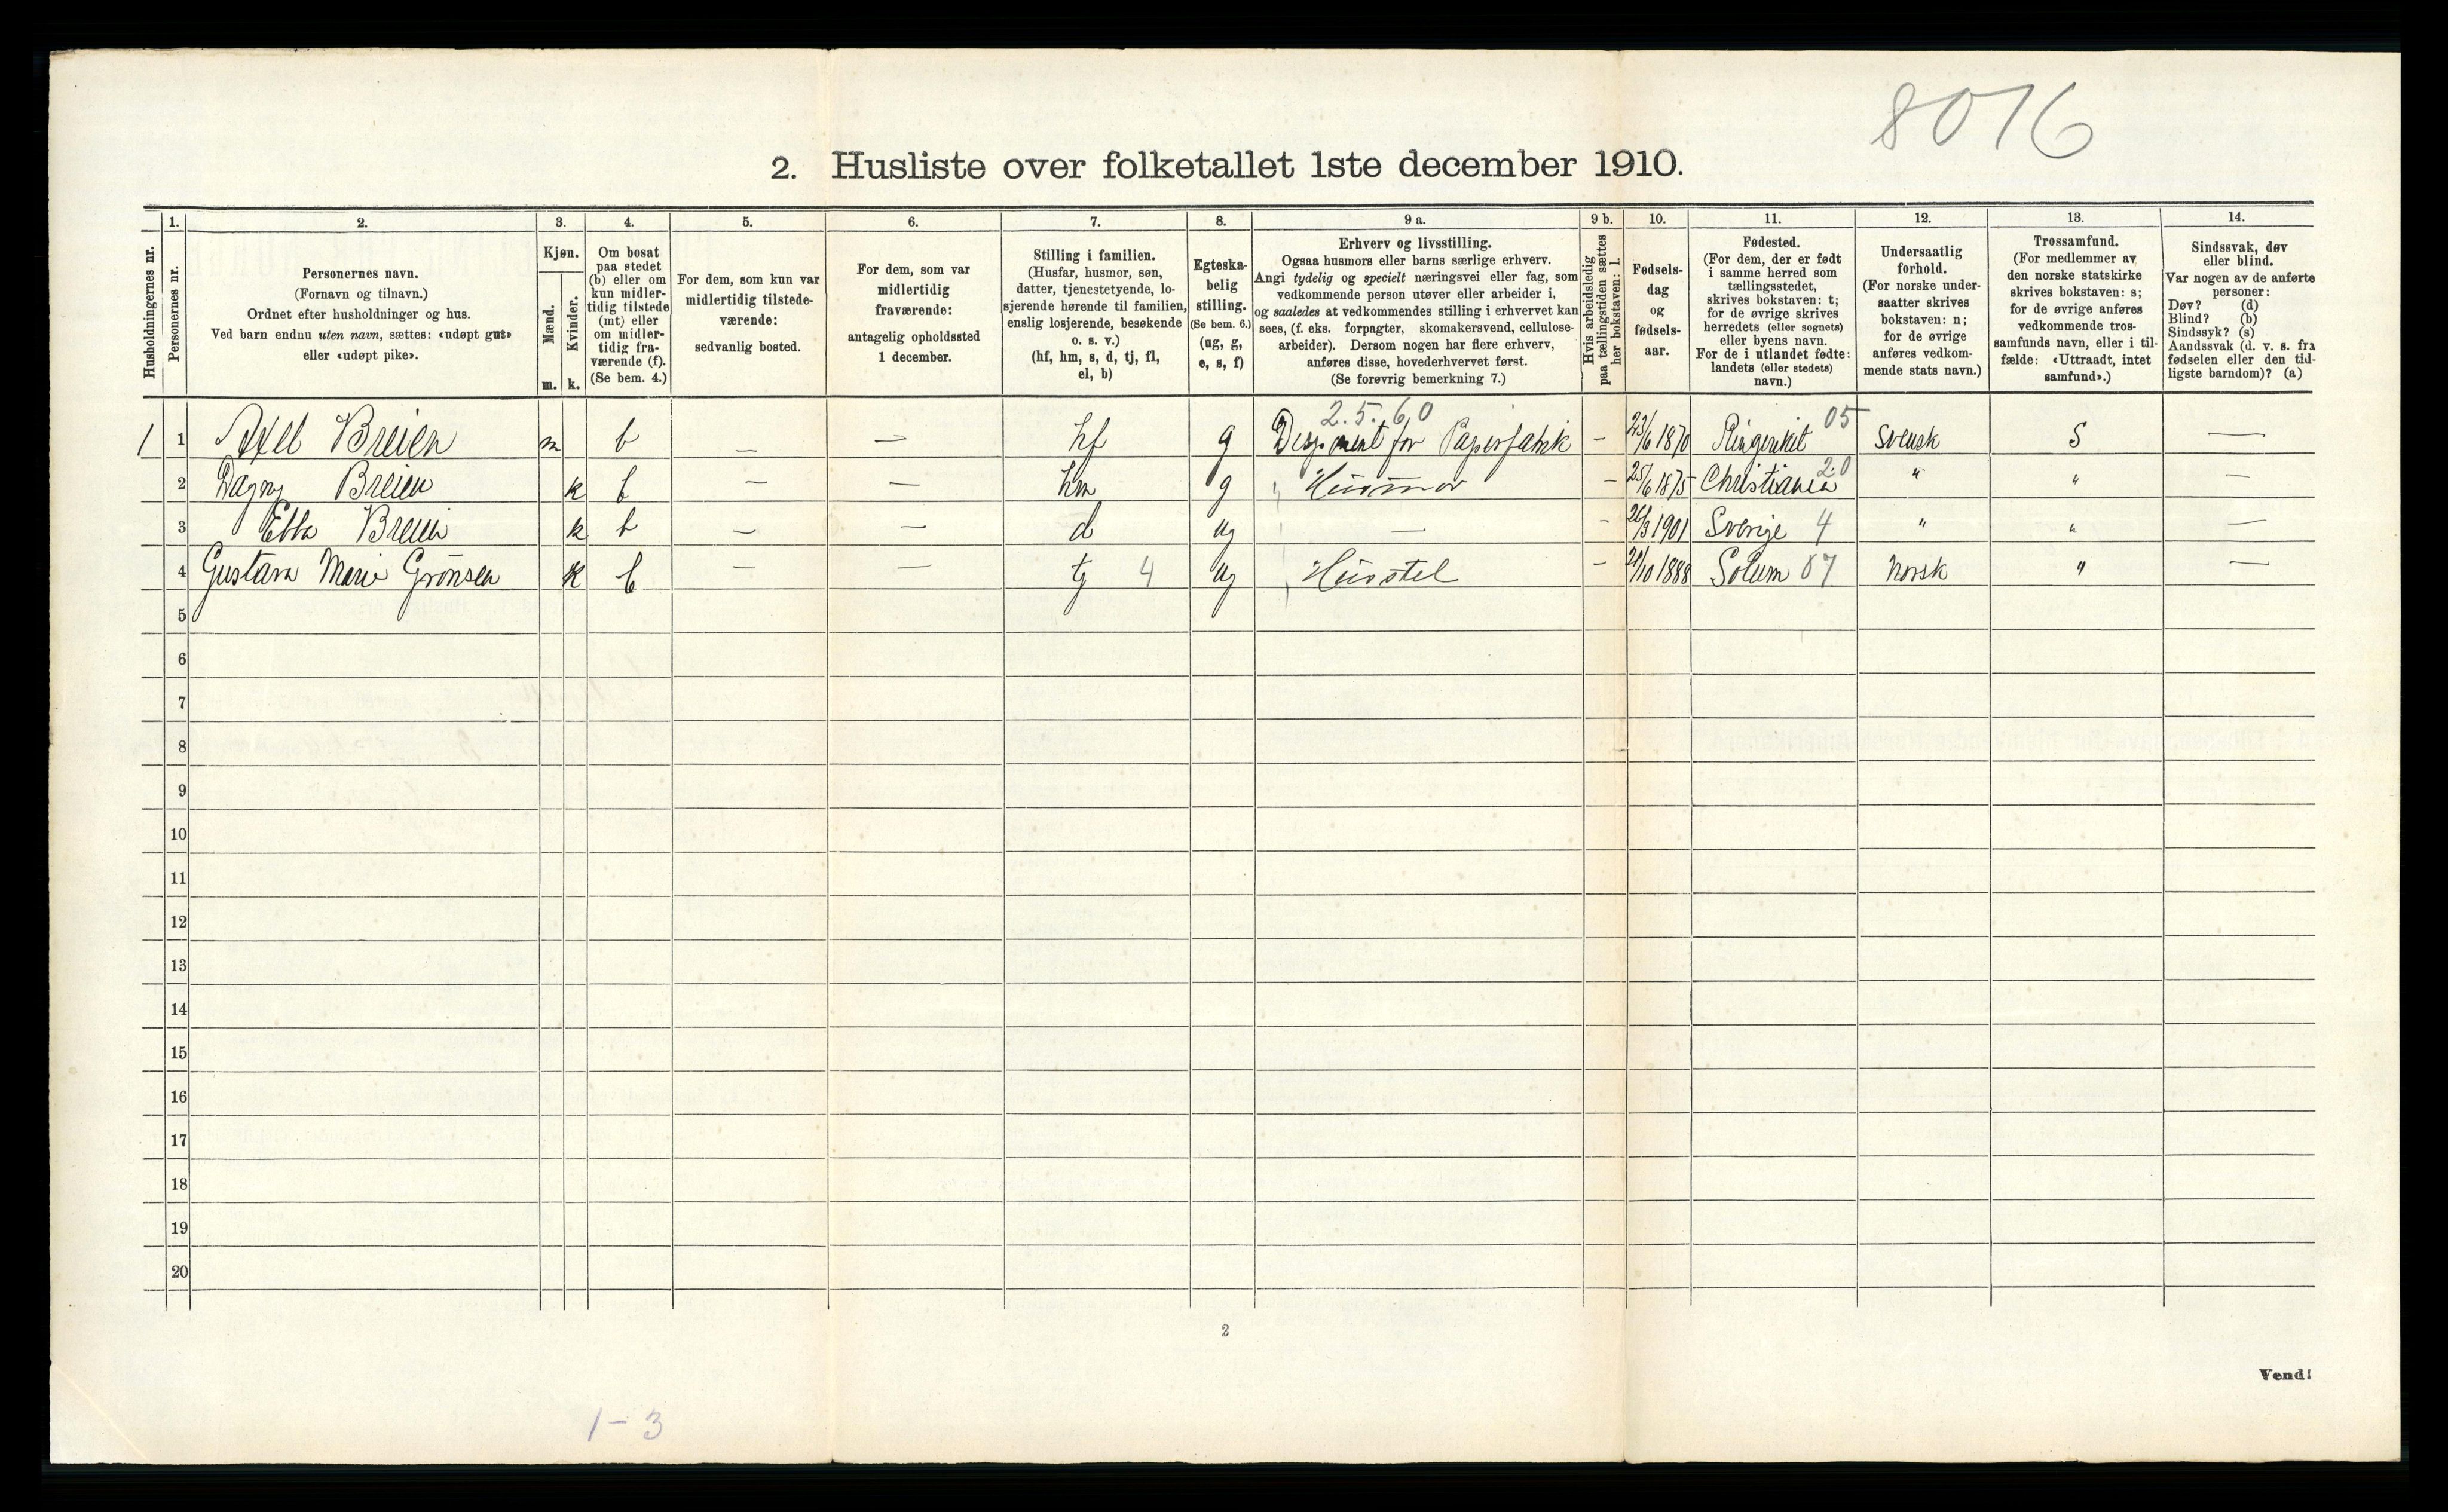 8016
2. Husliste over folketallet 1ste december 1910.
Husholdningernes nr.
1. Personernes nr.
2. Personernes navn. (Fornavn og tilnavn.) Ordnet efter husholdninger og hus. Ved barn endnu uten navn, sættes: «udøpt gut» eller «udøpt pike».
3. Kjøn. Mænd. m. Kvinder. k.
4. Om bosat paa stedet (b) eller om kun midlertidig tilstede (mt) eller om midlertidig fraværende (f). (Se bem. 4.)
5. For dem, som kun var midlertidig tilstedeværende: sedvanlig bosted.
6. For dem, som var midlertidig fraværende: antagelig opholdssted 1 december.
7. Stilling i familien. (Husfar, husmor, søn, datter, tjenestetyende, losjerende hørende til familien, enslig losjerende, besøkende o. s. v.) (hf, hm, s, d, tj, fl, el, b)
8. Egteskabelig stilling. (Se bem. 6.) (ug, g, e, s, f)
9 a. Erhverv og livsstilling. Ogsaa husmors eller barns særlige erhverv. Angi tydelig og specielt næringsvei eller fag, som vedkommende person utøver eller arbeider i, og saaledes at vedkommendes stilling i erhvervet kan sees, (f. eks. forpagter, skomakersvend, cellulosearbeider). Dersom nogen har flere erhverv, anføres disse, hovederhvervet først. (Se forøvrig bemerkning 7.)
9 b. Hvis arbeidsledig paa tællingstiden sættes her bokstaven: l.
10. Fødselsdag og fødselsaar.
11. Fødested. (For dem, der er født i samme herred som tællingsstedet, skrives bokstaven: t; for de øvrige skrives herredets (eller sognets) eller byens navn. For de i utlandet fødte: landets (eller stedets) navn.)
12. Undersaatlig forhold. (For norske undersaatter skrives bokstaven: n; for de øvrige anføres vedkommende stats navn.)
13. Trossamfund. (For medlemmer av den norske statskirke skrives bokstaven: s; for de øvrige anføres vedkommende trossamfunds navn, eller i tilfælde: «Uttraadt, intet samfund».)
14. Sindssvak, døv eller blind. Var nogen av de anførte personer: Døv? (d) Blind? (b) Sindssyk? (s) Aandssvak (d. v. s. fra fødselen eller den tidligste barndom)? (a)
2.5.60 05
1 1 Axel Breien m b — — hf g Disponent for Papirfabrik – 23/6 1870 Ringeriket Svensk S —
2 Dagny Breien k b — — hm g Husmor – 25/6 1875 Christiania 20 " " —
3 Ebba Breien k b — — d ug — – 26/3 1901 Sverige 4 " " —
4 Gustava Marie Grønsen k b — — tj 4 ug Husstel – /10 1888 Solum 07 Norsk " —
5
6
7
8
9
10
11
12
13
14
15
16
17
18
19
20
2
Vend!
1-3